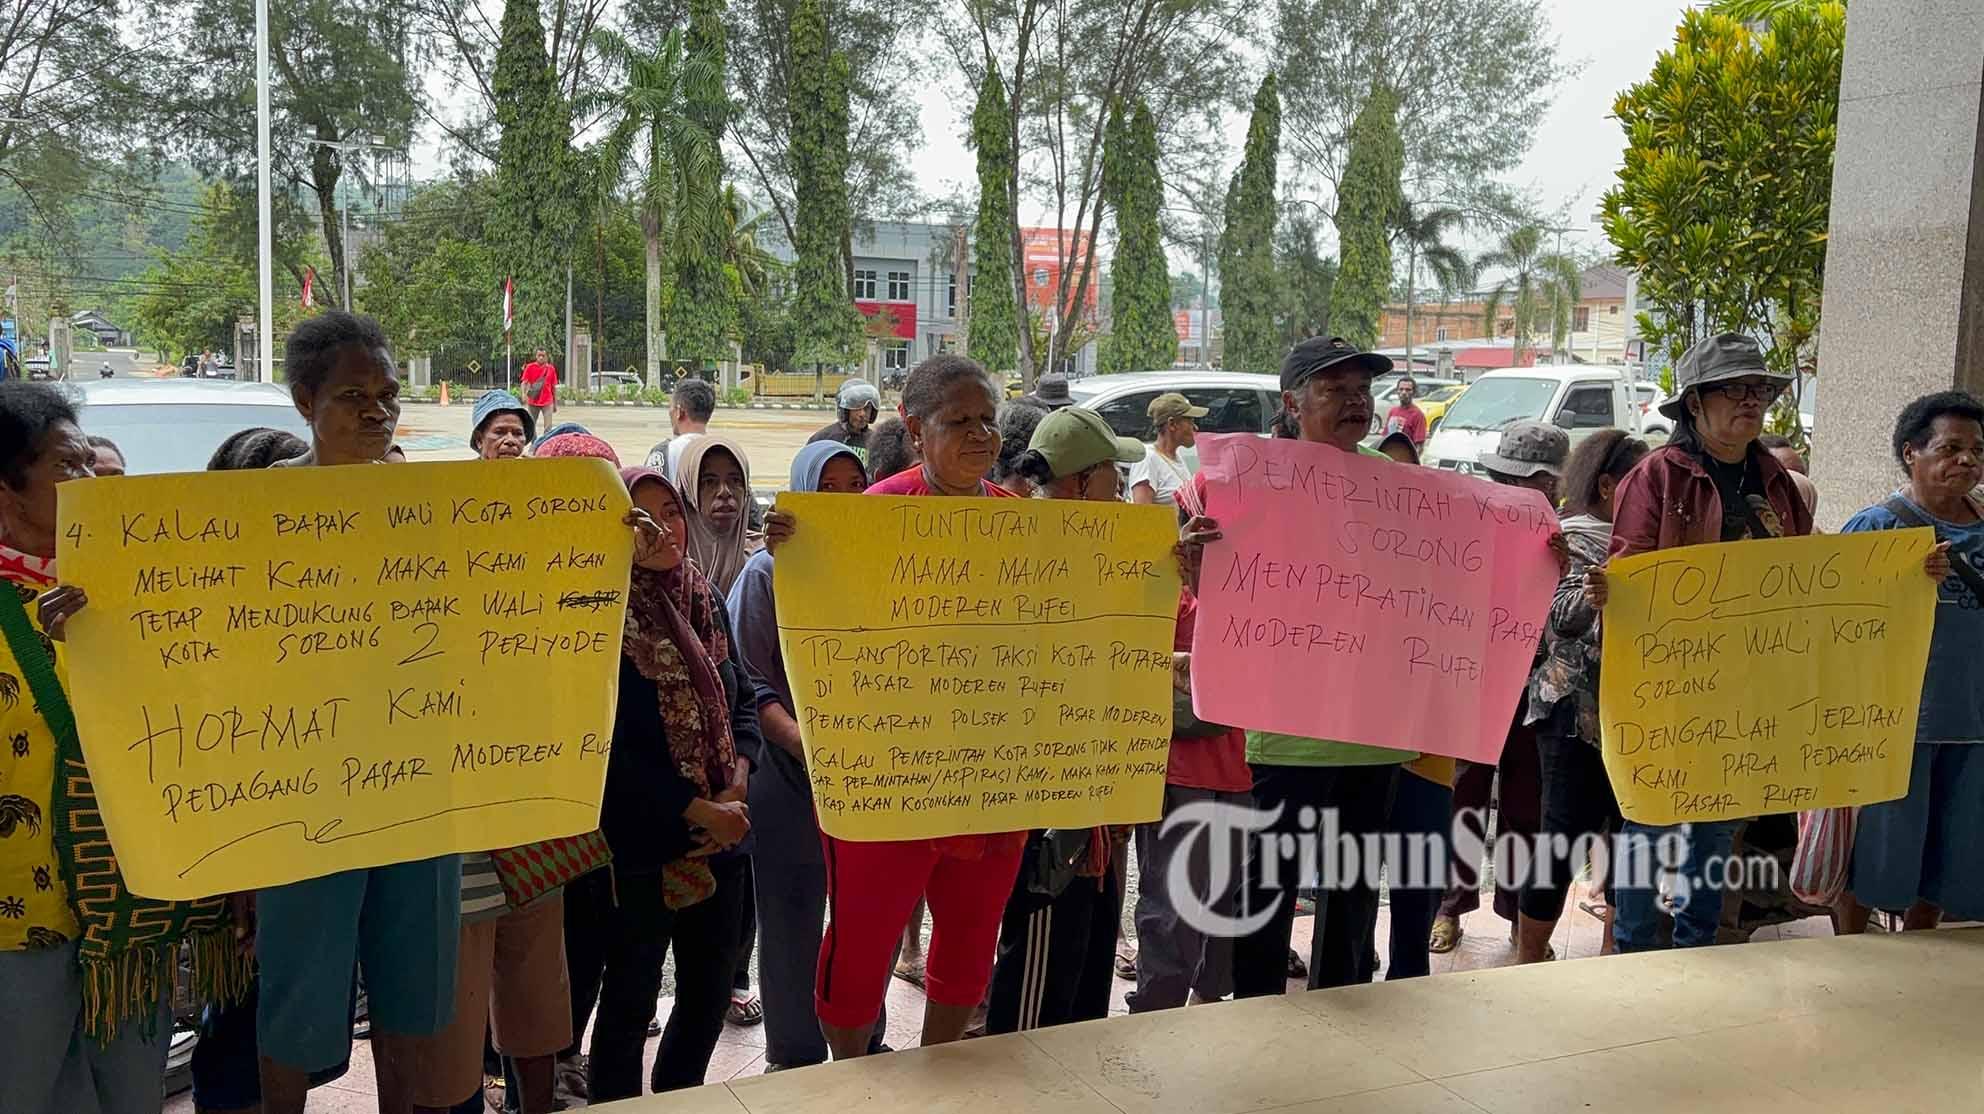 4. KALAU BAPAK WALI KOTA SORONG
MELIHAT KAMI. MAKA KAMI AKAN
TETAP MENDUKUNG BAPAK WALI
KOTA SORONG 2 PERIYODE
HORMAT KAMI.
PEDAGANG PASAR MODEREN RU
TUNTUTAN KAMI
MAMA-MAMA PASAR
MODEREN RUFEI
TRANSPORTASI TAKSI KOTA PUTARAN
DI PASAR MODEREN RUFEI
PEMEKARAN POLSEK DI PASAR MODEREN
KALAU PEMERINTAH KOTA SORONG TIDAK MENDEN
GAR PERMINTAHAN/ASPIRASI KAMI. MAKA KAMI NYATAKA
SIKAP AKAN KOSONGKAN PASAR MODEREN RUFEI
PEMERINTAH KOTA
SORONG
MENPERATIKAN PASA
MODEREN RUFEI
TOLONG!!!
BAPAK WALI KOTA
SORONG
DENGARLAH JERITAN
KAMI PARA PEDAGANG
- PASAR RUFEI -
TribunSorong.com